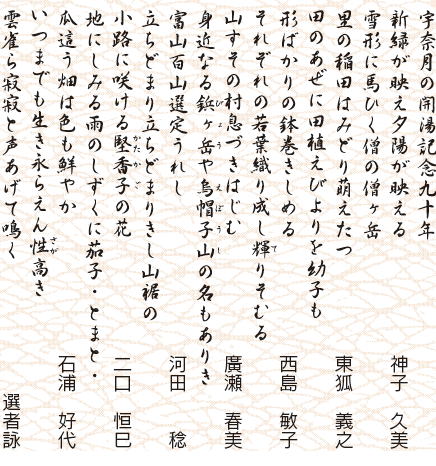 宇奈月の開湯記念九十年
新緑が映え夕陽が映える　神子 久美
雪形に馬ひく僧の僧ヶ岳
里の稲田はみどり萌えたつ　東狐 義之
田のあぜに田植えびよりを幼子も
形ばかりの鉢巻きしめる　西島 敏子
それぞれの若葉織り成し輝（て）りそむる
山すその村息づきはじむ　廣瀬 春美
身近なる鋲（びょう）ヶ岳や烏帽子（えぼうし）山の名もありき
富山百山選定うれし　河田 稔
立ちどまり立ちどまりきし山裾の
小路に咲ける堅香子（かたかご）の花　二口 恒巳
地にしみる雨のしずくに茄子・とまと・
瓜這う畑は色も鮮やか　石浦 好代
いつまでも生き永らえん性（さが）高き
雲雀ら寂寂と声あげて鳴く　選者詠